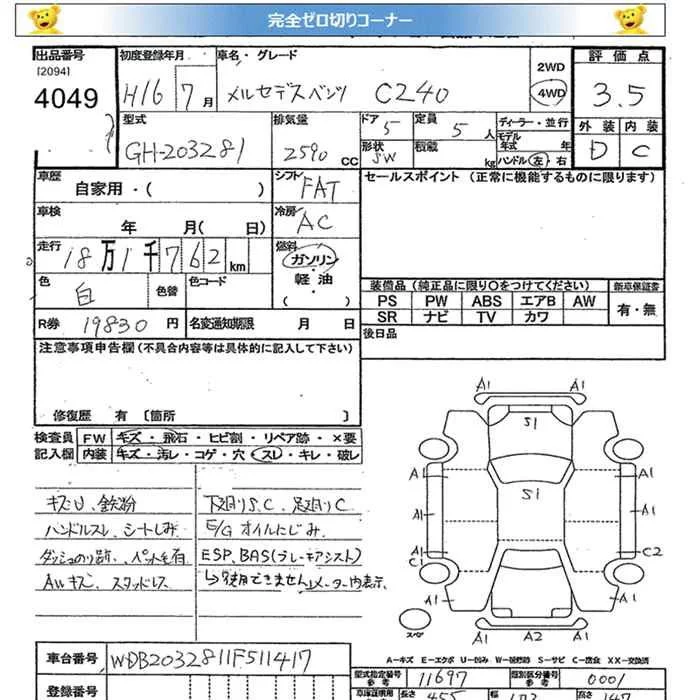 完全ゼロ切りコーナー
出品番号
[2094]
4049
初度登録年月
H16 7月
車名・グレード
メルセデスベンツ C240
2WD
4WD
評価点
3.5
外装 内装
D C
型式
GH-203281
排気量
2590 CC
ドア 5
形状 SW
定員 5 人
積載 kg
ディーラー・並行
モデル年式 年
ハンドル 左・右
車歴
自家用・( )
シフト FAT
車検
年 月( 日)
冷房 AC
走行
18万1千762km
燃料
ガソリン・
軽油・
色 白
色替
色コード
R券 19830 円
名変通知期限 月 日
セールスポイント (正常に機能するものに限ります)
装備品(純正品に限り○をつけてください)
新車保証書
PS PW ABS エアB AW
SR ナビ TV カワ
有・無
後日品
注意事項申告欄(不具合内容等は具体的に記入して下さい)
修復歴 有 〔箇所 〕
検査員
記入欄
FW キズ・飛石・ヒビ割・リペア跡・×要
内装 キズ・汚レ・コゲ・穴・スレ・キレ・破レ
キズU、鉄粉
ハンドルスレ、シートしみ
ダッシュのり跡、ペット毛有
AWキズ、スタッドレス
下廻りS.C 足廻りC
E/Gオイルにじみ
ESP、BAS(ブレーキアシスト)
↳使用できませんメーター内表示
A1 A1
S1
A1 A1
S1
A1 A1
A1 C2
C1
A1 A1
スペア
A1 A2 A1
A-キズ E-エクボ U-凹み W-板修跡 S-サビ C-腐食 XX-交換済
車台番号 WDB2032811F511417
型式指定番号
参考 11697
類別区分番号
参考 0001
登録番号
長さ 455